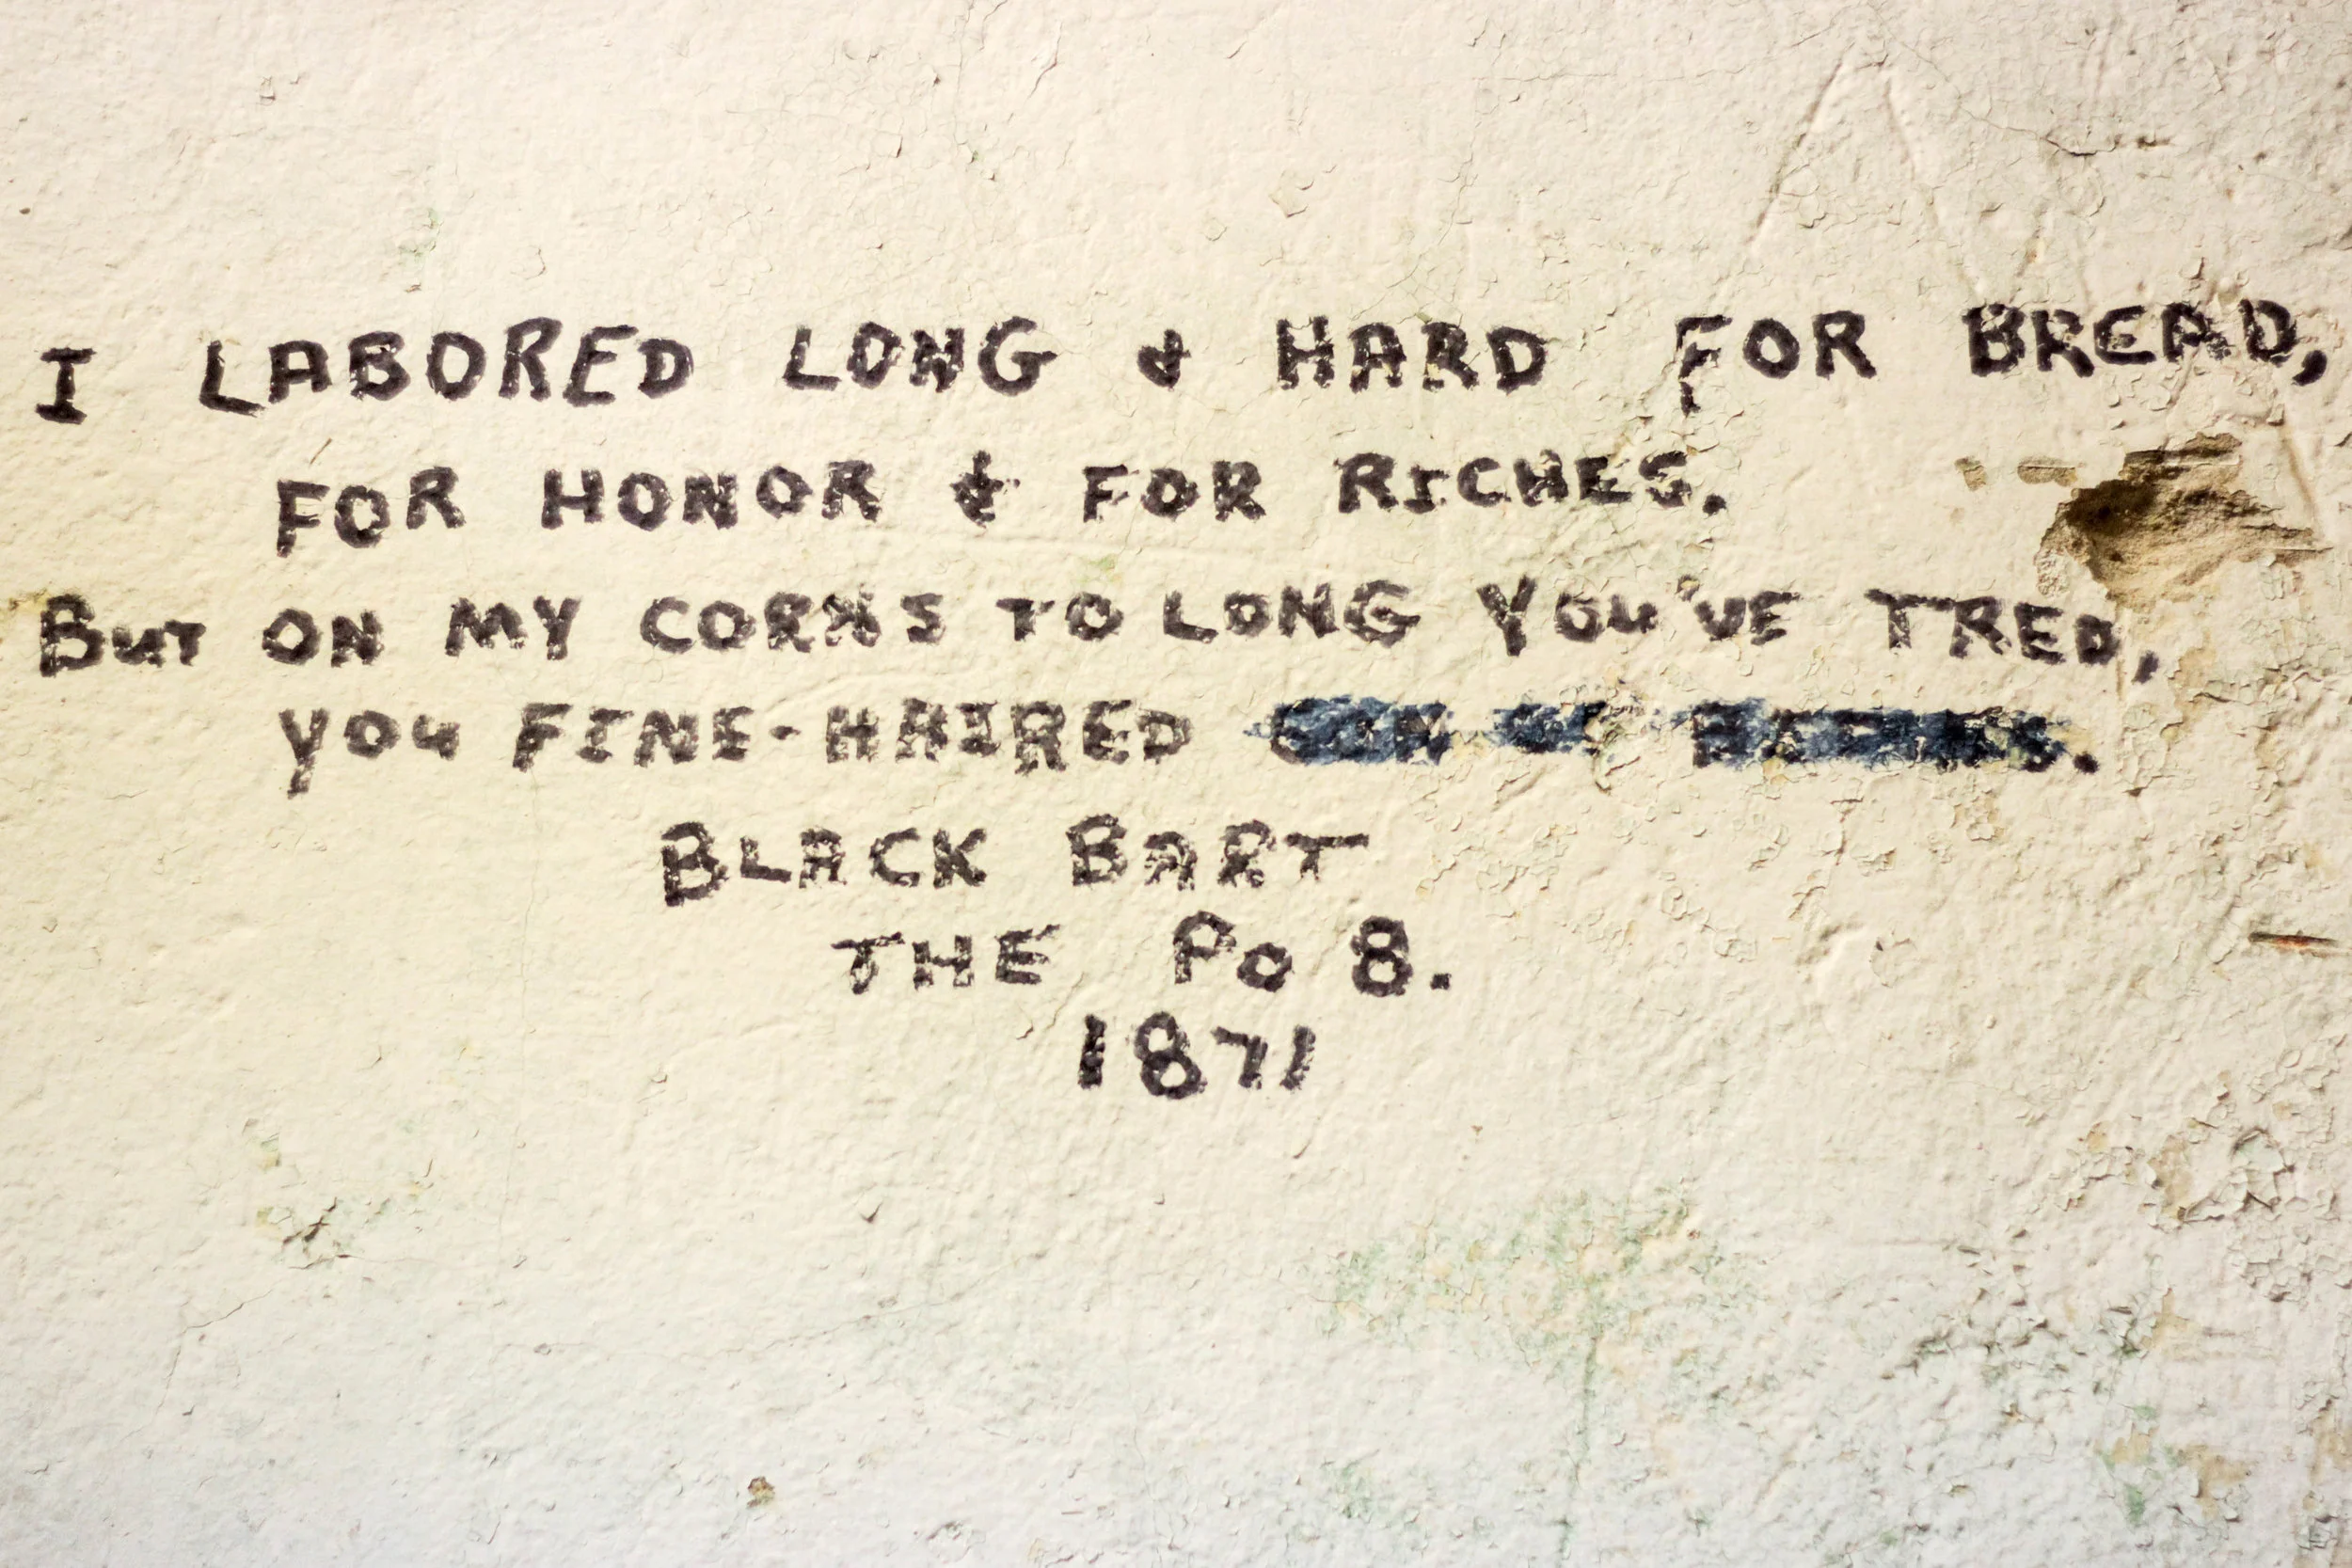 I LABORED LONG & HARD FOR BREAD,
FOR HONOR & FOR RICHES.
BUT ON MY CORNS TO LONG YOU'VE TRED,
YOU FINE-HAIRED
BLACK BART
THE PO 8.
1871